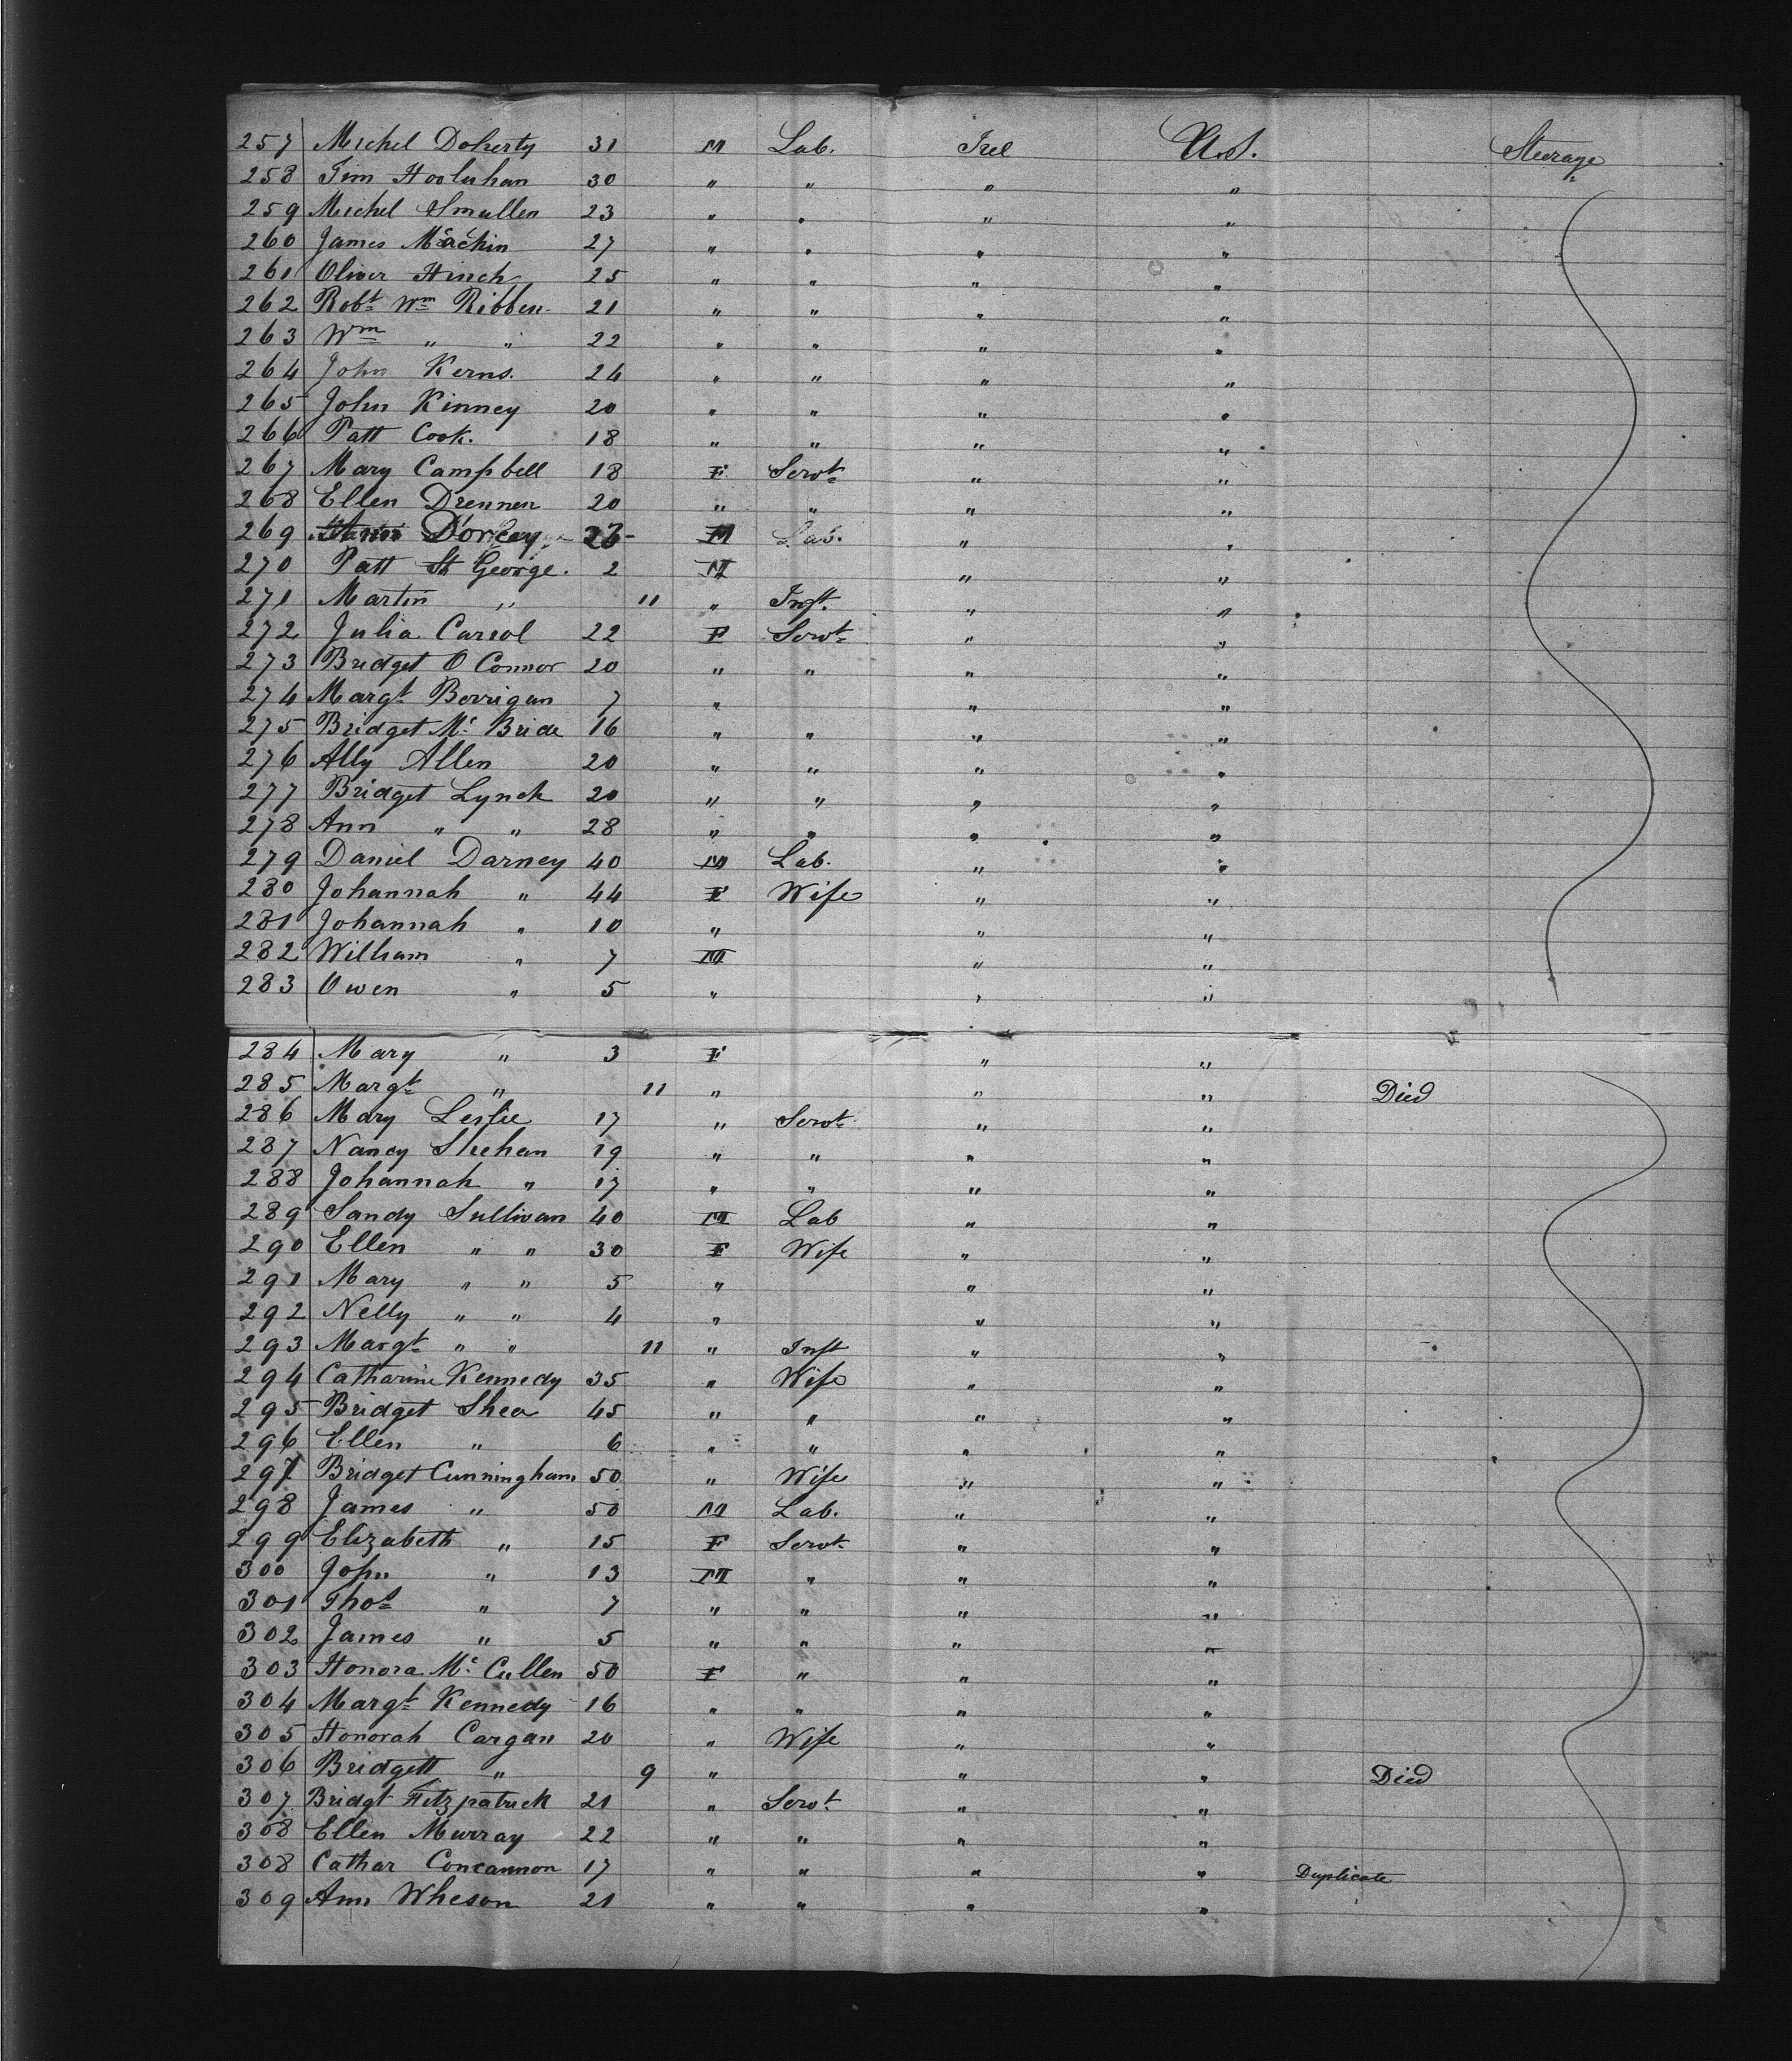 257 Michel Doherty 31 M Lab. Irel U.S. Steerage
258 Tim Hooluhan 30 " " " "
259 Michel Smullen 23 " " " "
260 James Machin 27 " " " "
261 Oliver Hinch 25 " " " "
262 Robt Wm Ribben 21 " " " "
263 Wm " " 22 " " " "
264 John Kerns. 24 " " " "
265 John Kinney 20 " " " "
266 Patt Cook. 18 " " " "
267 Mary Campbell 18 F Servt " "
268 Ellen Drennen 20 " " " "
269 Dorcey M Lab. " "
270 Patt St George. 2 M " "
271 Martin " 11 " Inft. " "
272 Julia Carrol 22 F Servt " "
273 Bridget O Connor 20 " " " "
274 Margt Berrigan 7 " " "
275 Bridget Mc Bride 16 " " " "
276 Ally Allen 20 " " " "
277 Bridget Lynch 20 " " " "
278 Ann " " 28 " " " "
279 Daniel Darney 40 M Lab. " "
280 Johannah " 44 F Wife " "
281 Johannah " 10 " " "
282 William " 7 M " "
283 Owen " 5 " " "
284 Mary " 3 F " "
285 Margt " 11 " " " Died
286 Mary Leslie 17 " Servt " "
287 Nancy Shehan 19 " " " "
288 Johannah " 17 " " " "
289 Sandy Sullivan 40 M Lab " "
290 Ellen " " 30 F Wife " "
291 Mary " " 5 " " "
292 Nelly " " 4 " " "
293 Margt " " 11 " Inft " "
294 Catharine Kennedy 35 " Wife " "
295 Bridget Shea 45 " " " "
296 Ellen " 6 " " " "
297 Bridget Cunningham 50 " Wife " "
298 James " 50 M Lab. " "
299 Elizabeth " 15 F Servt " "
300 John " 13 M " " "
301 Thos " 7 " " " "
302 James " 5 " " " "
303 Honora Mc Cullen 50 F " " "
304 Margt Kennedy 16 " " " "
305 Honorah Cargan 20 " Wife " "
306 Bridgett " 9 " " " Died
307 Bridgt Fitzpatrick 21 " Servt " "
308 Ellen Murray 22 " " " "
308 Cathar Concannon 17 " " " " Duplicate
309 Ann Wheson 21 " " " "